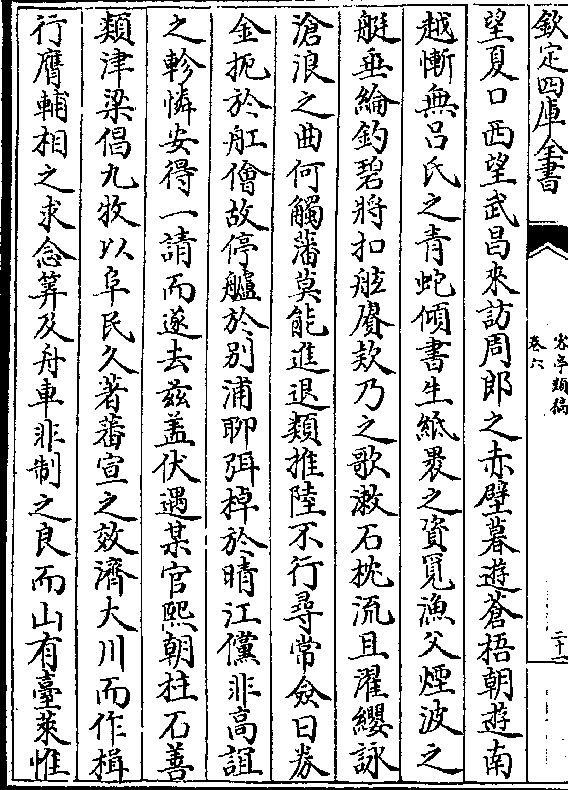 欽定四庫全書
客亭類稿
卷六
二十一
望夏口西望武昌來訪周郎之赤壁暮遊蒼梧朝遊南
越慚無呂氏之青蛇傾書生紙裹之資覓漁父煙波之
艇垂綸釣碧將扣舷賡欸乃之歌漱石枕流且濯纓詠
滄浪之曲何觸藩莫能進退類推陸不行尋常僉曰券
金扼於舡僧故停艫於别浦聊弭棹於晴江儻非高誼
之軫憐安得一請而遂去兹盖伏遇某官熙朝柱石善
類津梁倡九牧以阜民久著蕃宣之效濟大川而作楫
行膺輔相之求念筭及舟車非制之良而山有臺萊惟